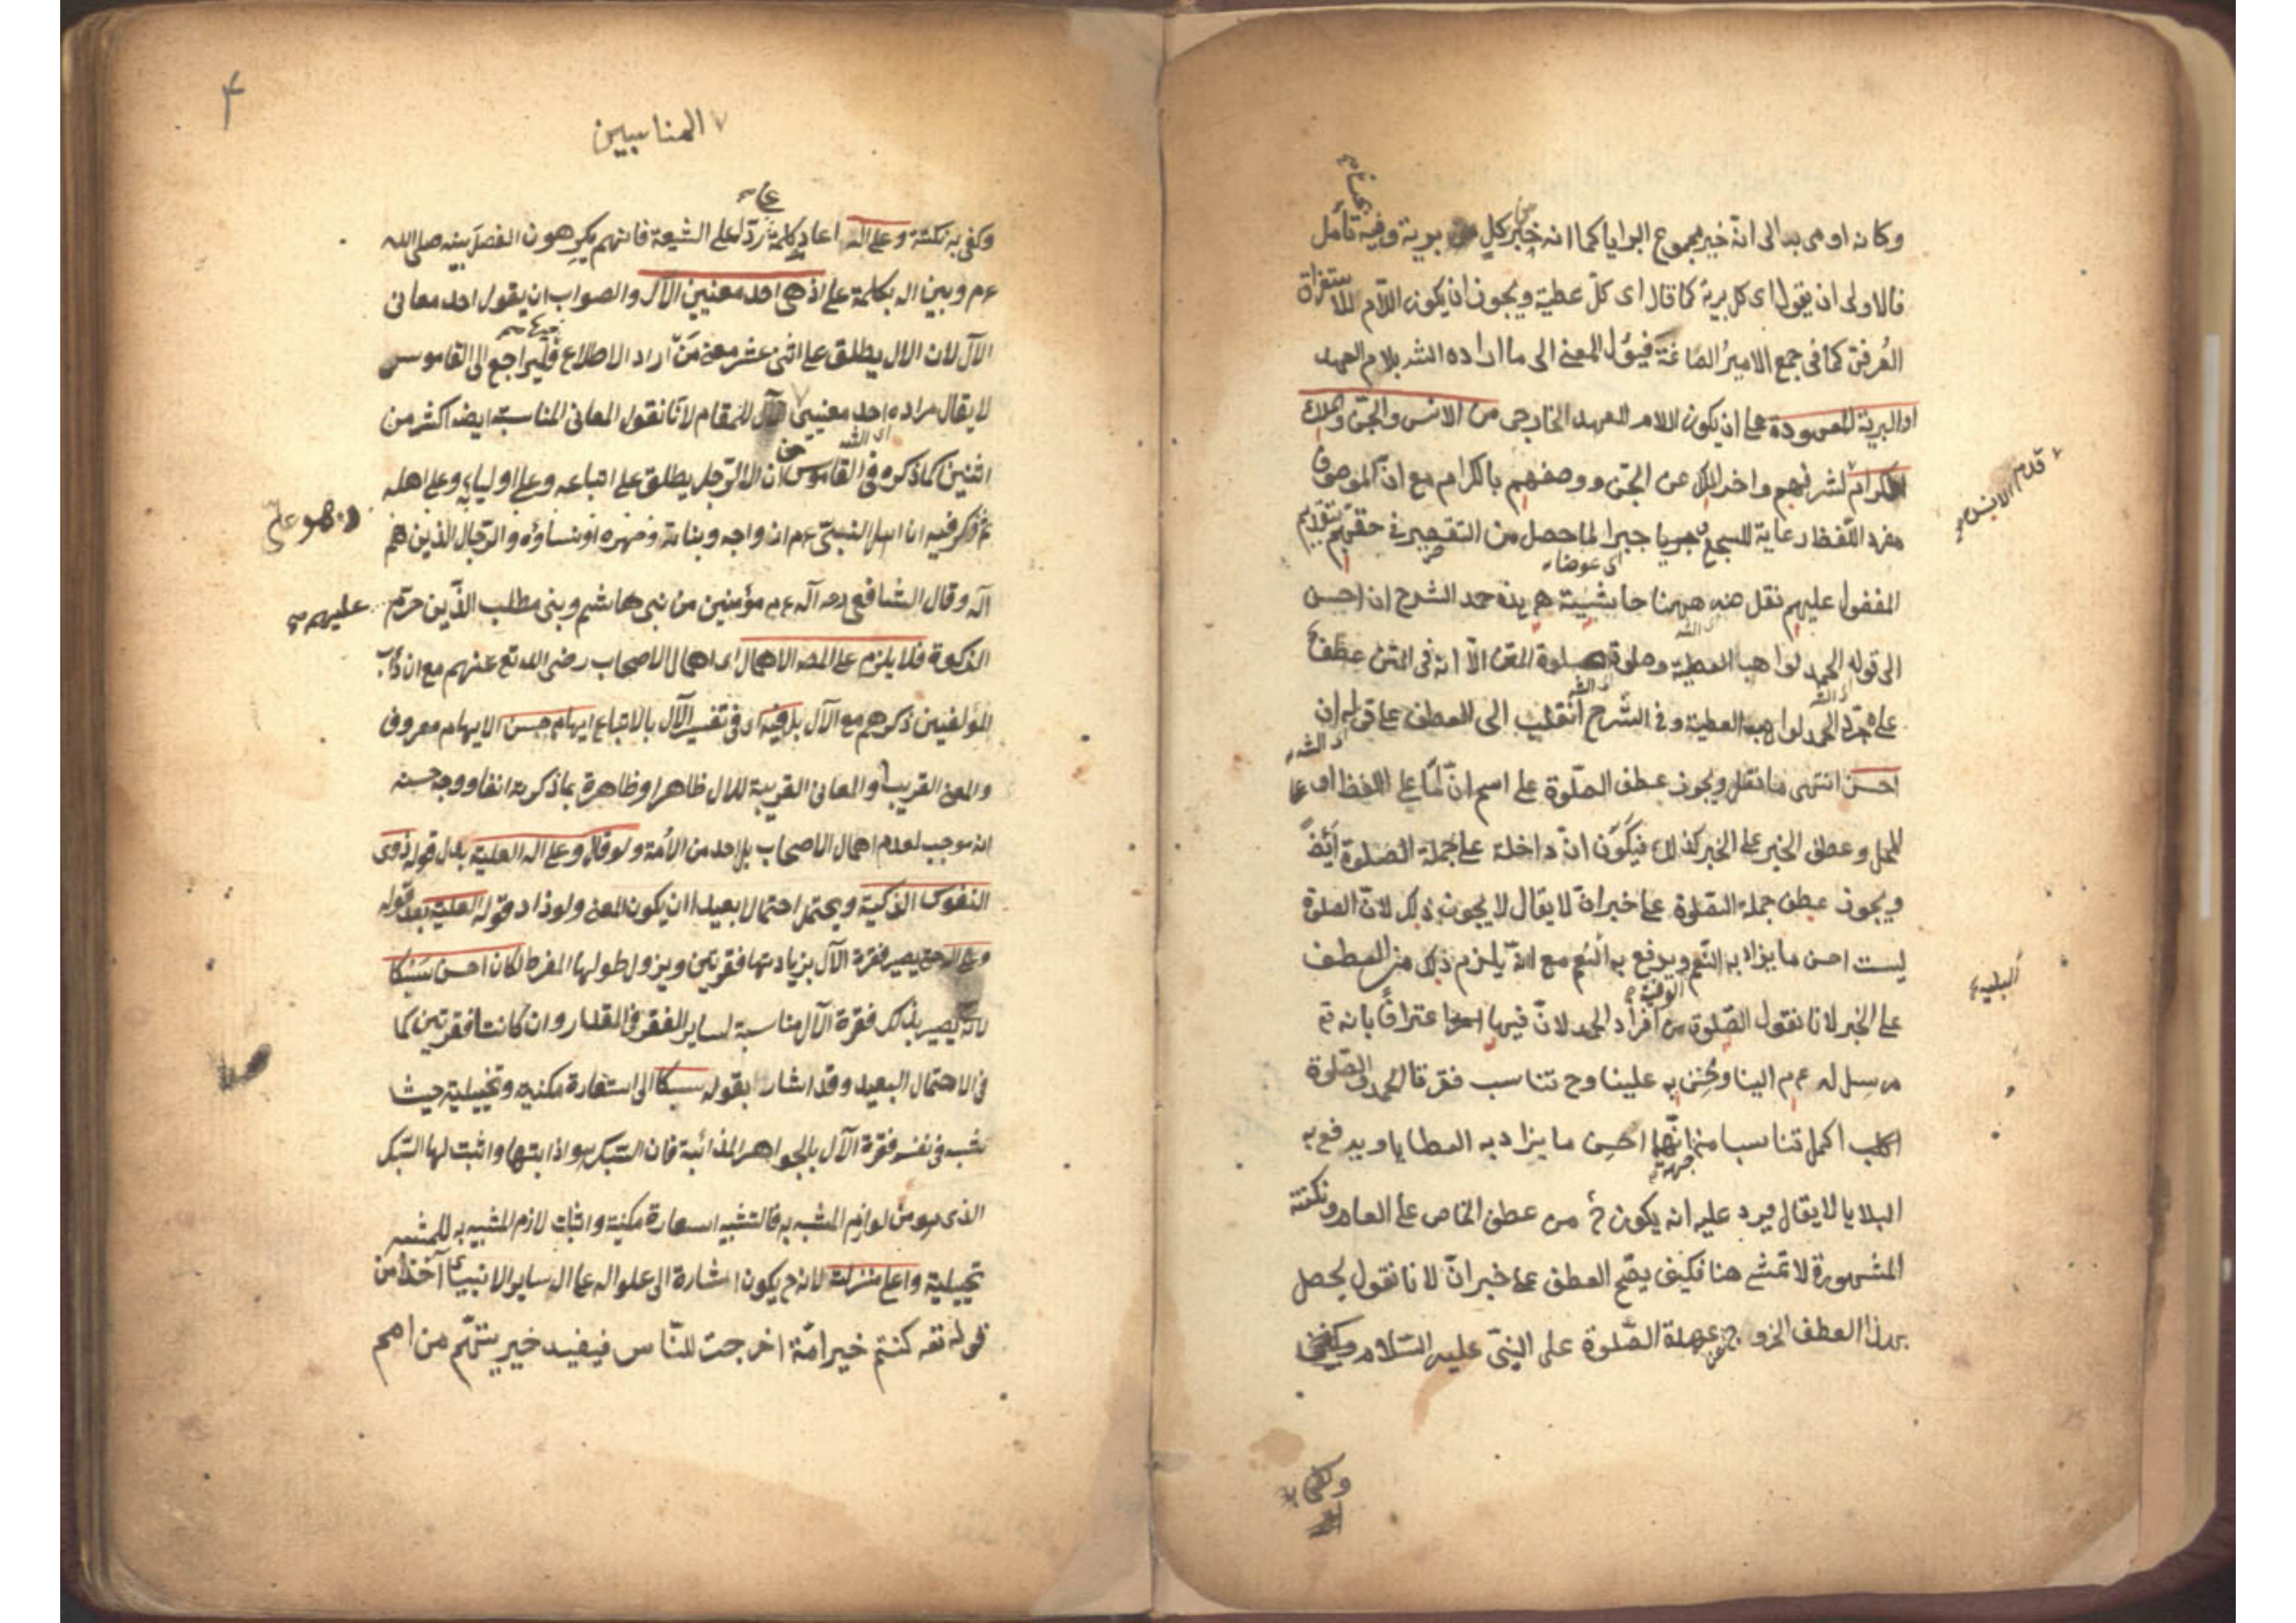 وكانه اومى به الى انه خير مجموع البرايا كما انه خير كل برية وفيه تأمل
فالاولى ان يقول اى كل برية كما قال اى كل عطية ويجوز ان يكون اللام للاستغراق
العرفى كما فى جمع الامير الصاغة فيؤل المعنى الى ما اراده الش بلام العهد
او البرية المعهودة على ان يكون اللام للعهد الخارجى من الانس والجن والملك
الكرام لشرفهم واخر الملك عن الجن ووصفهم بالكرام مع ان الموصوف
مفرد اللفظ رعاية للسجع جبرا لما حصل من التقصير فى حقهم بتقديم
المفضول عليهم نقل عنه ههنا حاشية هى هذه حمد الشرح ان احسن
الى قوله الحمد لواهب العطية وصلوة صلوة المتن الا انه فى المتن عطف
على الحمد لواهب العطية وفى الشرح انقلب الى العطف على قوله ان
احسن انتهى ما نقل ويجوز عطف الصلوة على اسم ان اما على اللفظ او على
المحل وعطف الخبر على الخبر كذلك فيكون ان داخلة على جملة الصلوة ايضا
ويجوز عطف جملة الصلوة على خبر ان لا يقال لا يجوز ذلك لان الصلوة
ليست احسن ما يزاد به النعم ويدفع به النقم مع انه يلزم ذلك من العطف
على الخبر لانا نقول الصلوة من افراد الحمد لان فيها اعترافا بانه تع
مرسل له عم الينا وحج تناسب فقرتا الحمد والصلوة
اكمل تناسبا من جهة انهما احسن ما يزاد به العطايا ويدفع به
البلايا لا يقال فيرد عليه انه يكون ح من عطف الخاص على العام ونكتته
المشهورة لا تمشى هنا فكيف يصح العطف على خبر ان لانا نقول يحصل
بهذا العطف الخروج عن عهدة الصلوة على النبى عليه السلام ويكفى
قدم الانس
البلية
وكفى
٤
المناسبين
وكفى به نكتة وعلى اله اعاد كلمة على ردا على الشيعة فانهم يكرهون الفصل بينه صلى الله
عم وبين اله بكلمة على اذ هى احد معنيين الآل والصواب ان يقول احد معانى
الآل لان الال يطلق على اثنى عشر معنى من اراد الاطلاع فليراجع الى القاموس
لا يقال مراده احد معنيى الآل للمقام لانا نقول المعانى المناسبة ايضا اكثر من
اثنين كما ذكره فى القاموس ان الال الرجل يطلق على اتباعه وعلى اوليائه وعلى اهله
ثم ذكر فيه ان اهل النبى عم ازواجه وبناته وصهره او نساؤه والرجال الذين هم
آله وقال الشافعى رحه آله عم مؤمنين من بنى هاشم وبنى مطلب الذين حرم
الزكوة فلا يلزم على المص الاهمال اى اهمال الاصحاب رضى الله تع عنهم مع ان دأب
المؤلفين ذكرهم مع الآل بل فيه اى فى تفسير الآل بالاتباع ايهام حسن الايهام معروف
والمعنى القريب والمعانى القريبة للال ظاهر او ظاهرة بما ذكرته انفا ووجه حسنه
انه موجب لعدم اهمال الاصحاب بل احد من الامة ولو قال وعلى اله العلية بدل قوله ذوى
النفوس الزكية ويحتمل احتمالا بعيدا ان يكون المعنى ولو زاد قوله العلية بعد قوله
وعلى اله حتى يصير فقرة الآل بزيادتها فقرتين ويزول طولها المفرط لكان احسن سبكا
لانه يصير بذلك فقرة الآل مناسبة لساير الفقر فى المقدار وان كانت فقرتين كما
فى الاحتمال البعيد وقد اشار بقوله سبكا الى استعارة مكنية وتخييلية حيث
شبه فى نفسه فقرة الآل بالجواهر المذائبة فان السبك هو اذابتها واثبت لها السبك
الذى هو من لوازم المشبه به فالتشبيه استعارة مكنية واثبات لازم المشبه به للمشبه
تخييلية واعلى منزلة لانه ح يكون اشارة الى علو اله على ال ساير الانبياء آخذا من
قوله تعه كنتم خير امة اخرجت للناس فيفيد خيريتهم من امم
عليهم